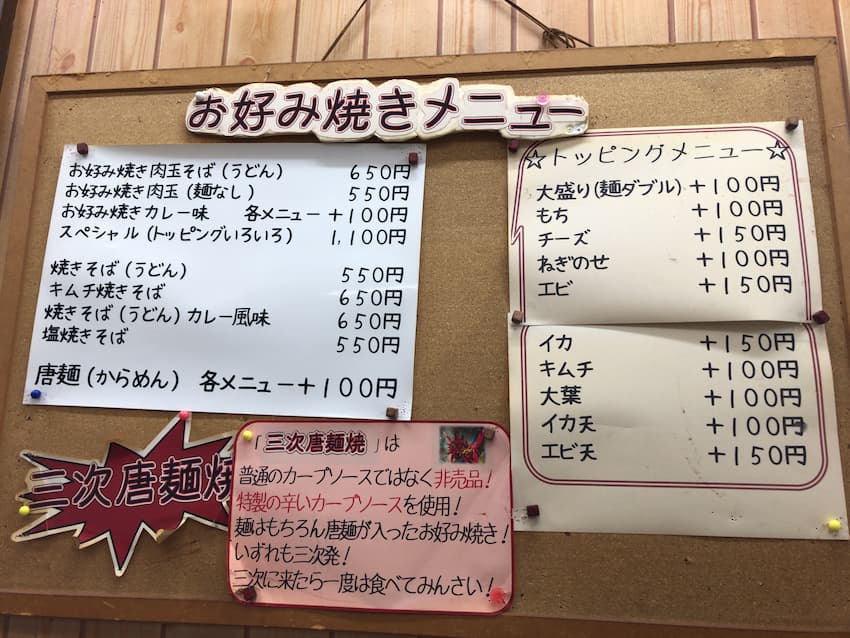 お好み焼きメニュー
お好み焼き肉玉そば(うどん) 650円
お好み焼き肉玉(麺なし) 550円
お好み焼きカレー味 各メニュー+100円
スペシャル(トッピングいろいろ) 1,100円
焼きそば(うどん) 550円
キムチ焼きそば 650円
焼きそば(うどん)カレー風味 650円
塩焼きそば 550円
唐麺(からめん) 各メニュー+100円
☆トッピングメニュー☆
大盛り(麺ダブル) +100円
もち +100円
チーズ +150円
ねぎのせ +100円
エビ +150円
イカ +150円
キムチ +100円
大葉 +100円
イカ天 +100円
エビ天 +150円
三次唐麺焼
「三次唐麺焼」は
普通のカープソースではなく非売品!
特製の辛いカープソースを使用!
麺はもちろん唐麺が入ったお好み焼き!
いずれも三次発!
三次に来たら一度は食べてみんさい!